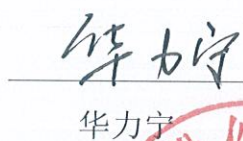 华力宁
华力宁